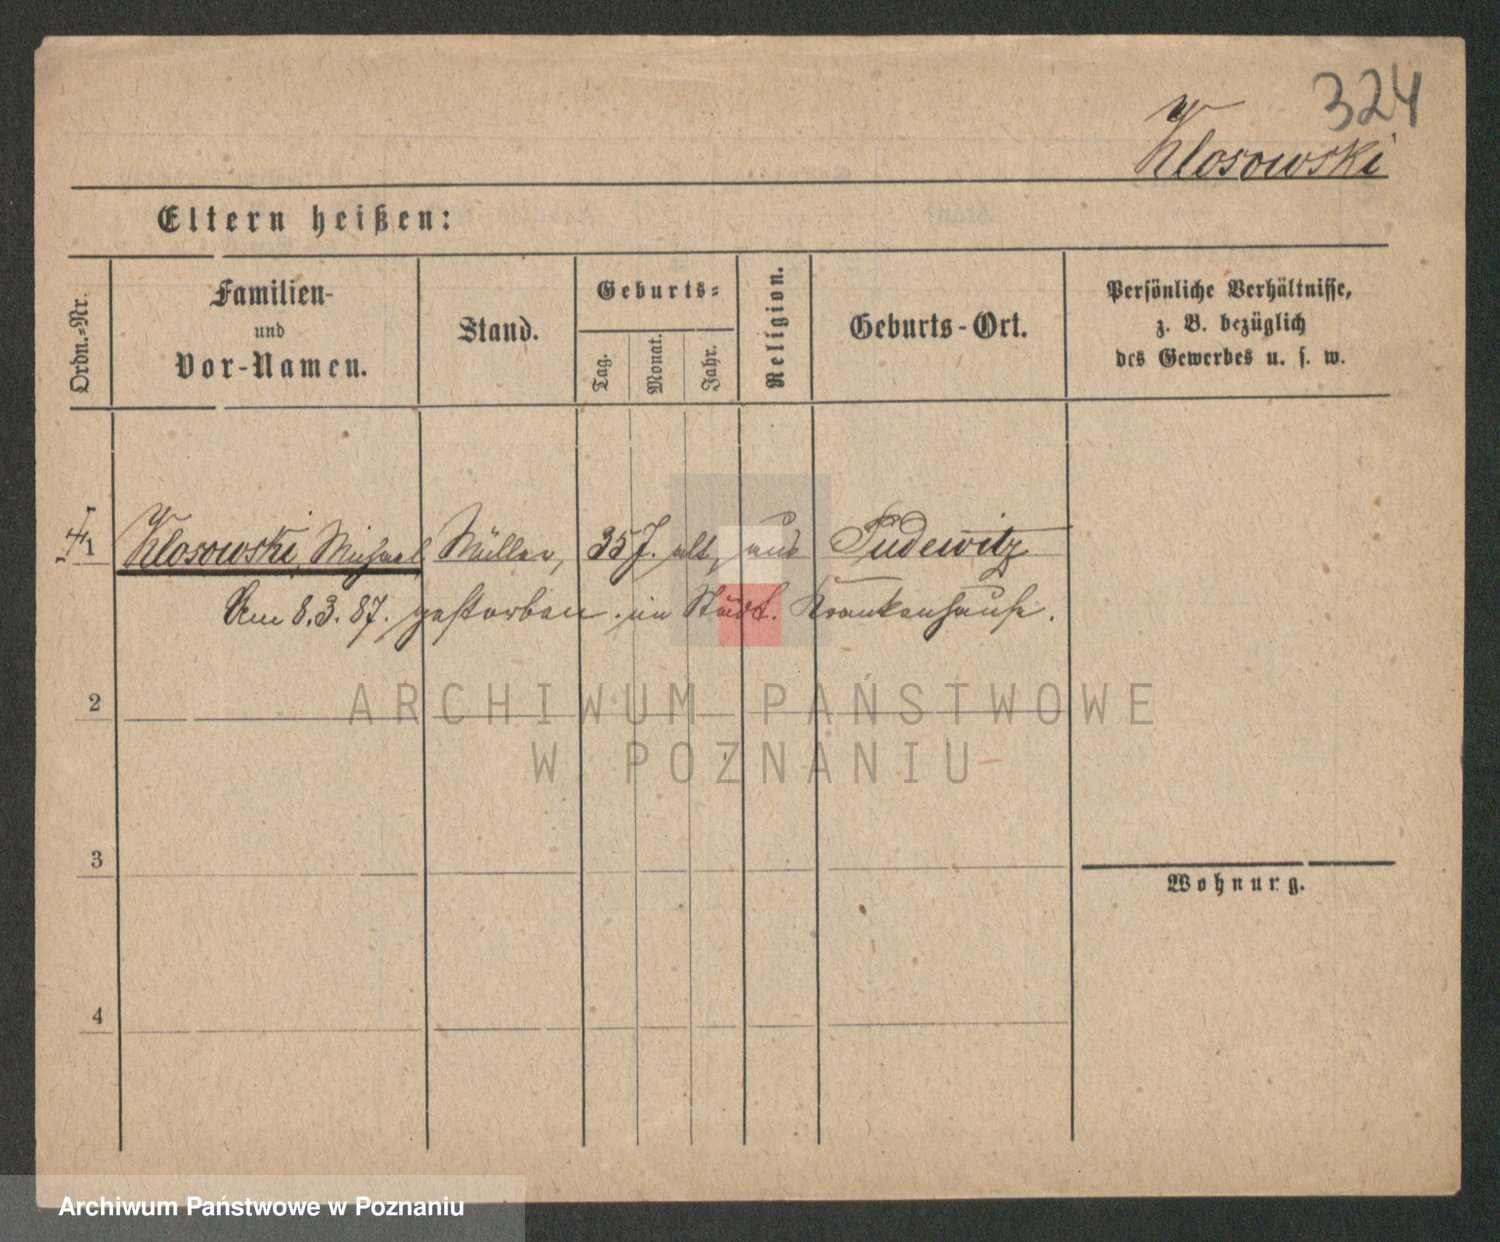 324
Klosowski
Eltern heißen:
Ordn.-Nr.
Familien-
und
Vor-Namen.
Stand.
Geburts-
Tag.
Monat.
Jahr.
Religion.
Geburts-Ort.
Persönliche Verhältnisse,
z. B. bezüglich
des Gewerbes u. s. w.
1 Klosowski, Michael, Müller, 35 J. alt, aus Pudewitz
Am 8.3.87. gestorben im Städt. Krankenhause.
2
ARCHIWUM PAŃSTWOWE
W POZNANIU
3
Wohnung.
4
Archiwum Państwowe w Poznaniu